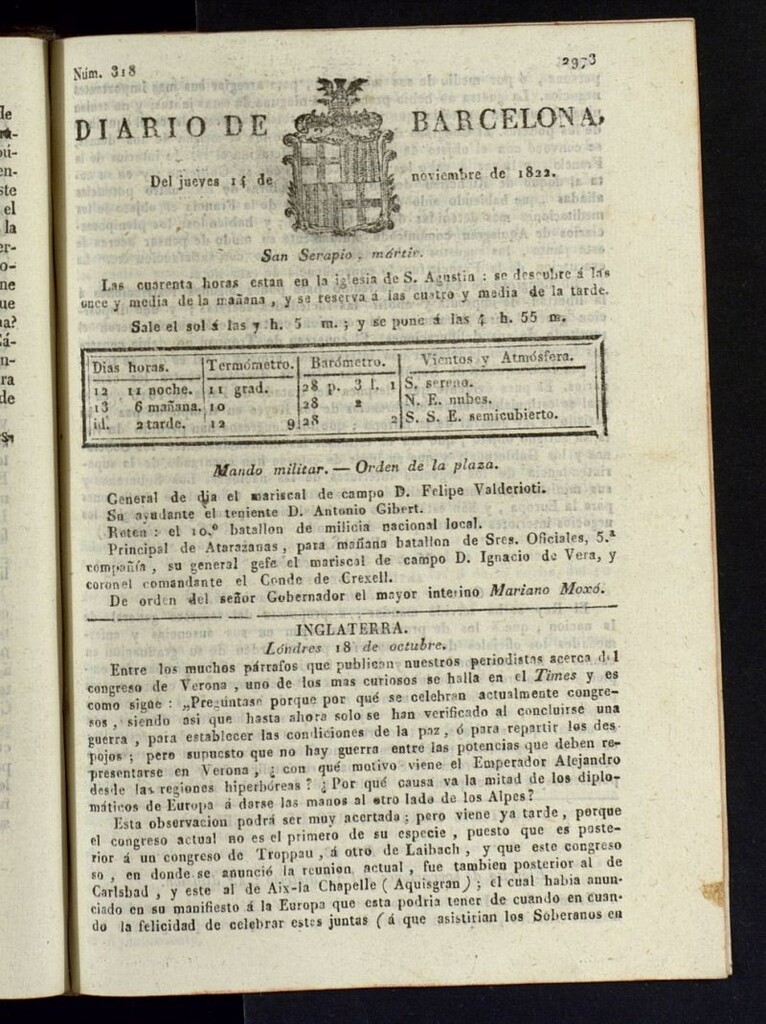 Núm. 318
2973
DIARIO DE BARCELONA,
Del jueves 14 de noviembre de 1822.
San Serapio, mártir.
Las cuarenta horas estan en la iglesia de S. Agustin : se descubre á las
once y media de la mañana, y se reserva á las cuatro y media de la tarde.
Sale el sol á las 7 h. 5 m. ; y se pone á las 4 h. 55 m.
Dias horas. Termómetro. Barómetro. Vientos y Atmósfera.
12 11 noche. 11 grad. 28 p. 3 l. 1 S. sereno.
13 6 mañana. 10 28 2 N. E. nubes.
id. 2 tarde. 12 9 28 2 S. S. E. semicubierto.
Mando militar. — Orden de la plaza.
General de dia el mariscal de campo D. Felipe Valderioti.
Su ayudante el teniente D. Antonio Gibert.
Reten : el 10.º batallon de milicia nacional local.
Principal de Atarazanas, para mañana batallon de Sres. Oficiales, 5.ª
compañia, su general gefe el mariscal de campo D. Ignacio de Vera, y
coronel comandante el Conde de Crexell.
De orden del señor Gobernador el mayor interino Mariano Moxó.
INGLATERRA.
Lóndres 18 de octubre.
Entre los muchos párrafos que publican nuestros periodistas acerca del
congreso de Verona, uno de los mas curiosos se halla en el Times y es
como sigue : „Pregúntase porque por qué se celebran actualmente congre-
sos, siendo asi que hasta ahora solo se han verificado al concluirse una
guerra, para establecer las condiciones de la paz, ó para repartir los des-
pojos ; pero supuesto que no hay guerra entre las potencias que deben re-
presentarse en Verona, ¿ con qué motivo viene el Emperador Alejandro
desde las regiones hiperbóreas ? ¿ Por qué causa va la mitad de los diplo-
máticos de Europa á darse las manos al otro lado de los Alpes?
Esta observacion podrá ser muy acertada ; pero viene ya tarde, porque
el congreso actual no es el primero de su especie, puesto que es poste-
rior á un congreso de Troppau, á otro de Laibach, y que este congreso
so, en donde se anunció la reunion actual, fue tambien posterior al de
Carlsbad, y este al de Aix-la Chapelle ( Aquisgran ) ; el cual habia anun-
ciado en su manifiesto á la Europa que esta podria tener de cuando en cuan-
do la felicidad de celebrar estes juntas ( á que asistirian los Soberanos en